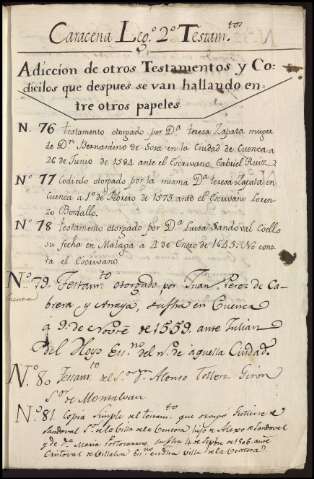 Caracena Leg.º 2.º Testam.tos
Adiccion de otros Testamentos y Co-
dicilos que despues se van hallando en-
tre otros papeles
N.º 76 testamento otorgado por D.ª teresa Zapata muger
de D.n Bernardino de Sosa en la Ciudad de Cuenca a
26 de Junio de 1584 ante el Escrivano Gabriel Ruiz
N.º 77 Codicilo otorgado por la misma D.ª teresa Zapata en
Cuenca a 1.º de Febrero de 1575 ante el Escrivano Loren-
zo Bordallo.
N.º 78 testamento otorgado por D.ª Luisa Sandoval Coello
su fecha en Malaga a 2 de Enero de 1645: No cons-
ta el Escrivano
N.º 79. Testam.to otorgado por Juan Perez de Ca-
Cuenca brera, y Anaya, su fha en Cuenca
a 9. de Nov.re de 1559. ante Julian
del Hoyo Ess.no del n.º de aquella Ciudad.
N.º 80 Testam.to del S.or D. Alonso Tellez Giron
S.or de Montalvan
N.º 81 Copia simple del testam.to que otorgo Gutierre de
Sandoval S.r de la Villa de la Ventosa hijo de Alvaro de Sandoval
y de D.ª Maria su fha de 1506. ante
Cristoval de Villalon Es.no en dha villa de la Ventosa